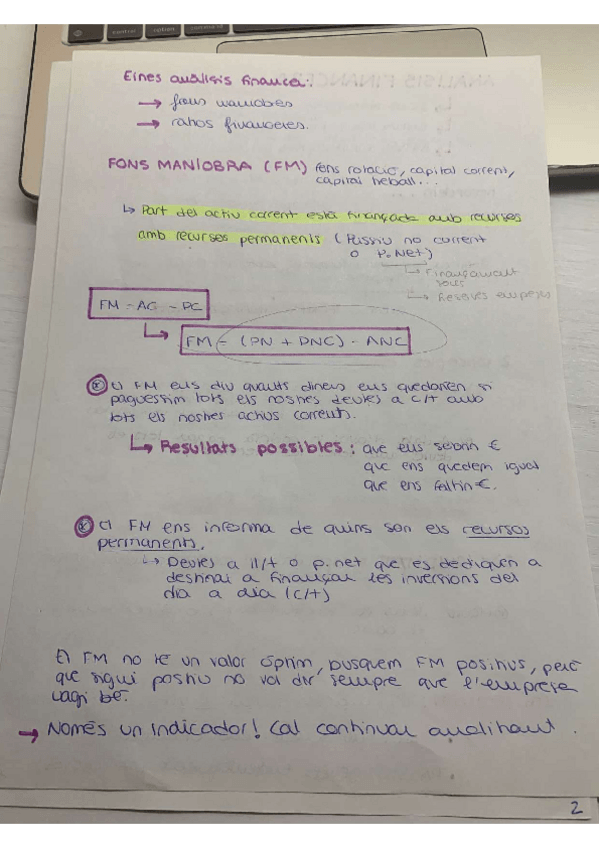 Eines anàlisis financer:
→ fons maniobres
→ ratios financeres.
FONS MANIOBRA (FM) fons rotació, capital corrent,
capital treball...
↳ Part del actiu corrent està finançada amb recursos
amb recursos permanents (Passiu no corrent
o P. Net)
↳ Finançament
socis
↳ Reserves empresa
FM = AC - PC
↳ FM = (PN + PNC) - ANC
* El FM ens diu quants diners ens quedarien si
paguessim tots els nostres deutes a c/t amb
tots els nostres actius corrents.
↳ Resultats possibles: que ens sobrin €
que ens quedem igual
que ens faltin €.
* El FM ens informa de quins son els recursos
permanents.
↳ Deutes a ll/t o p. net que es dediquen a
destinai a finançar les inversions del
dia a dia (c/t)
El FM no té un valor òptim, busquem FM positius, però
que sigui positiu no vol dir sempre que l'empresa
vagi bé.
→ Només un indicador! Cal continuar analitzant.
2